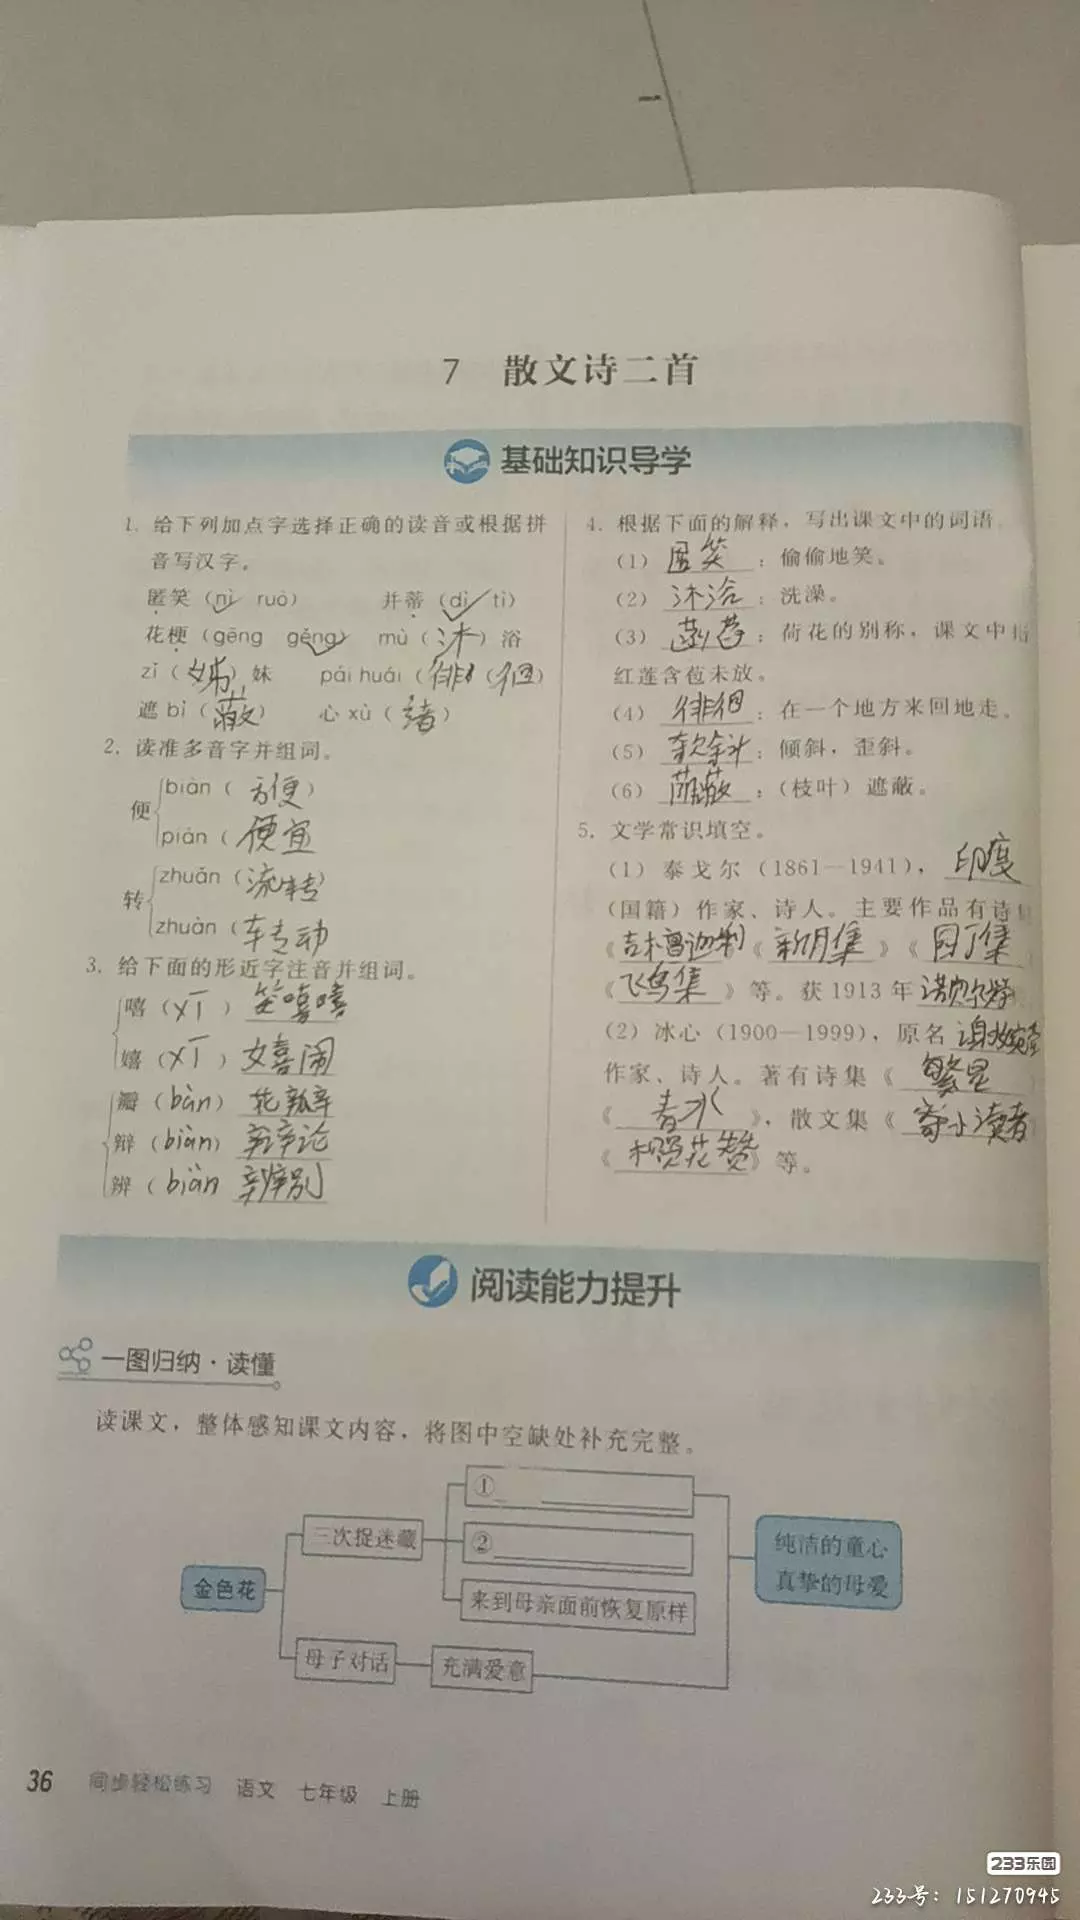 7 散文诗二首
基础知识导学
1. 给下列加点字选择正确的读音或根据拼
音写汉字。
匿笑（nì ruò） 并蒂（dì tì）
花梗（gēng gěng） mù（沐）浴
zǐ（姊）妹 pái huái（徘（徊）
遮 bì（蔽） 心 xù（绪）
2. 读准多音字并组词。
便
biàn（方便）
pián（便宜
转
zhuǎn（流转）
zhuàn（转动
3. 给下面的形近字注音并组词。
嘻（xī）笑嘻嘻
嬉（xī）嬉闹
瓣（bàn）花瓣
辩（biàn）辩论
辨（biàn 辨别
4. 根据下面的解释，写出课文中的词语。
（1）匿笑：偷偷地笑。
（2）沐浴：洗澡。
（3）菡萏：荷花的别称，课文中指
红莲含苞未放。
（4）徘徊：在一个地方来回地走。
（5）欹斜：倾斜，歪斜。
（6）荫蔽：（枝叶）遮蔽。
5. 文学常识填空。
（1）泰戈尔（1861—1941），印度
（国籍）作家、诗人。主要作品有诗集
《吉檀迦利》《新月集》《园丁集
《飞鸟集》等。获 1913 年诺贝尔
（2）冰心（1900—1999），原名谢婉莹
作家、诗人。著有诗集《繁星
《春水》，散文集《寄小读者
《樱花赞》等。
阅读能力提升
一图归纳·读懂
读课文，整体感知课文内容，将图中空缺处补充完整。
金色花
三次捉迷藏
①
②
来到母亲面前恢复原样
母子对话
充满爱意
纯洁的童心
真挚的母爱
36 同步轻松练习 语文 七年级 上册
233乐园
233号：151270945